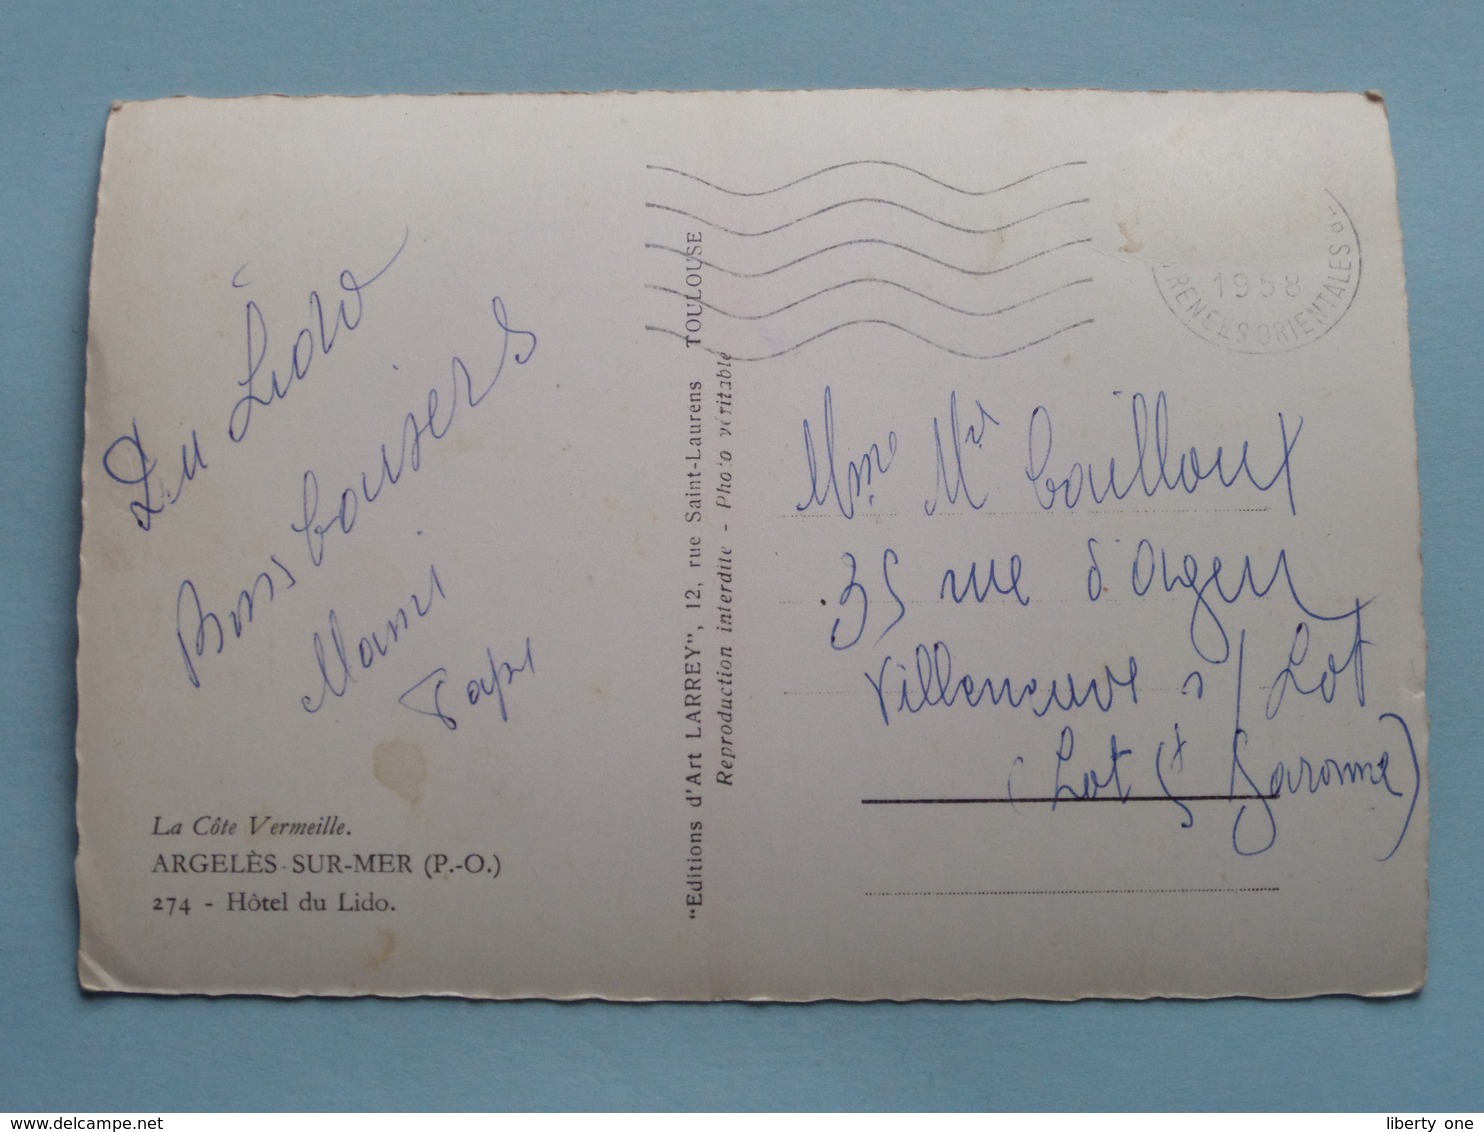 Du Lido
Bons baisers
Mami
Papi
La Côte Vermeille.
ARGELÈS-SUR-MER (P.-O.)
274 - Hôtel du Lido.
"Editions d'Art LARREY", 12, rue Saint-Laurens TOULOUSE
Reproduction interdite - Photo véritable
1958
RENEES ORIENTALES
Mme Mr Cailloux
35 rue d'Agen
Villeneuve s/Lot
(Lot & Garonne)
liberty one